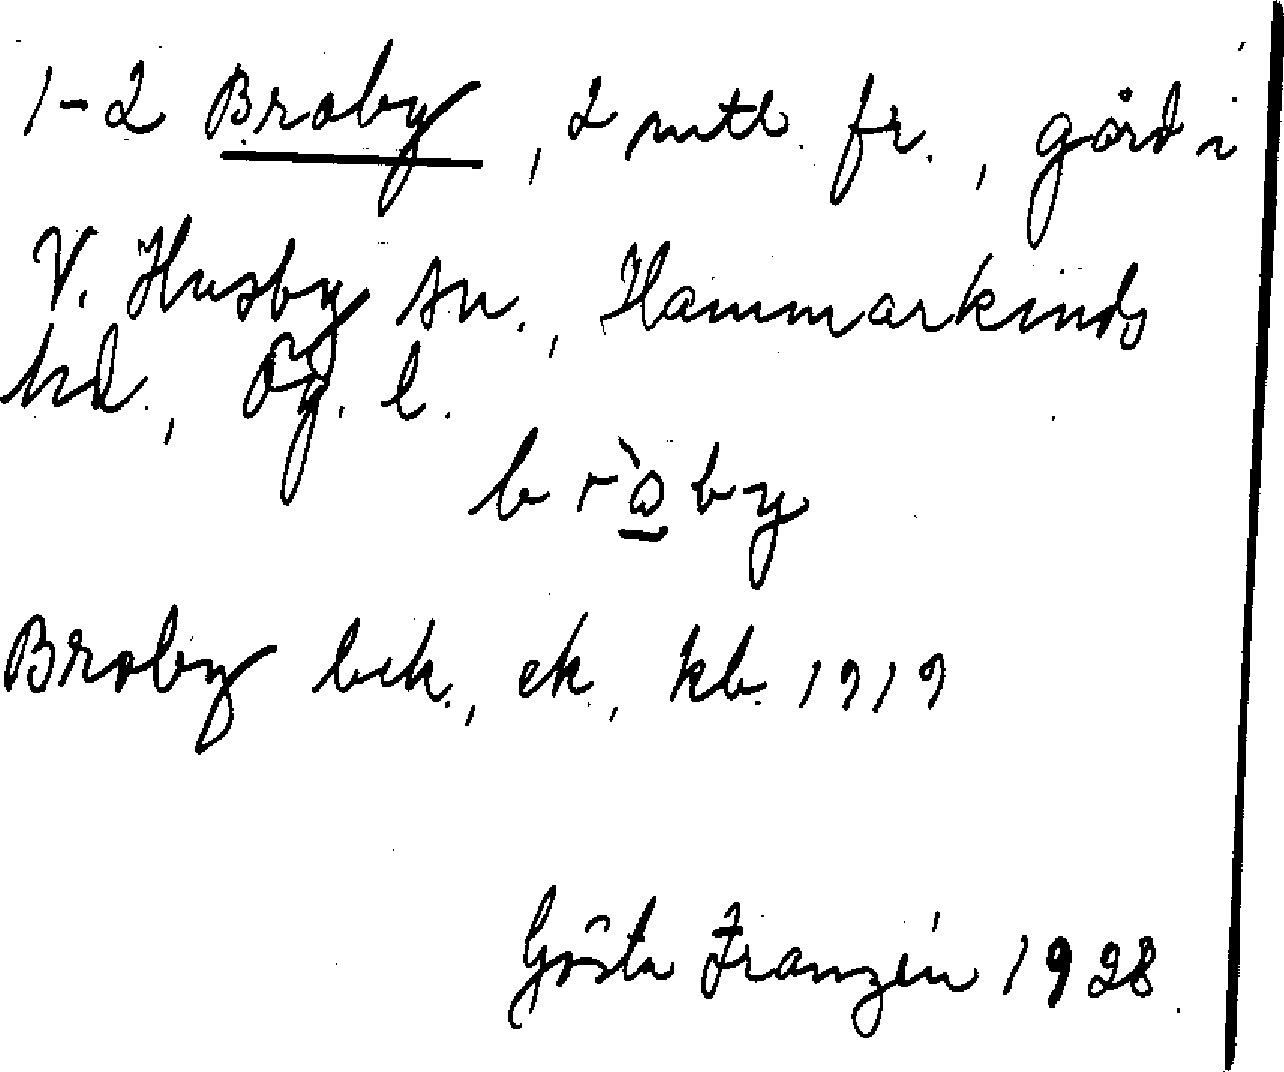 1-2 Broby, 2 mtl. fr., gård i
V. Husby sn., Hammarkinds
hd., Ög. l.
bròby
Broby bek., ek., kb. 1919
Gösta Franzén 1928